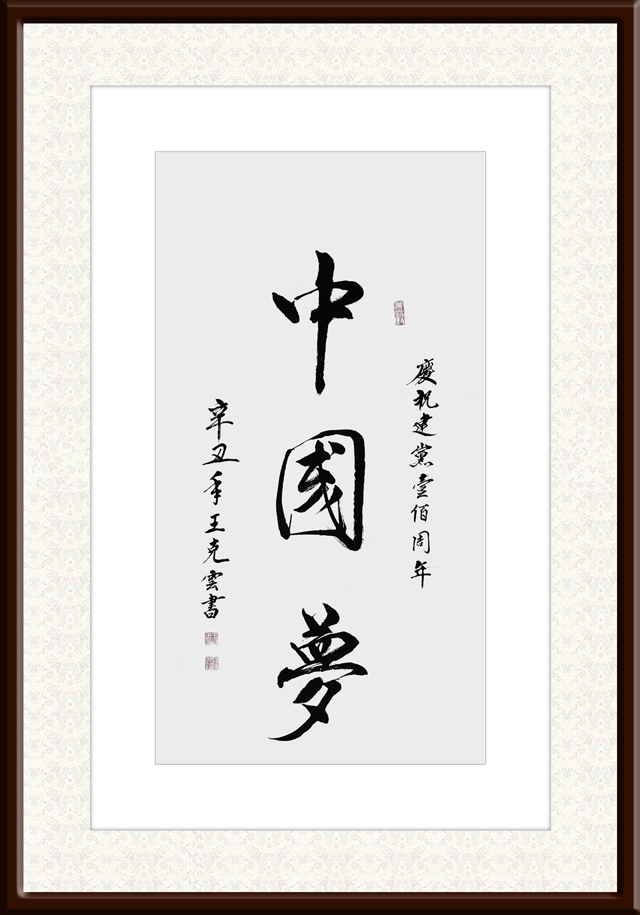 慶祝建黨壹佰周年
中國夢
辛丑年王克雲書